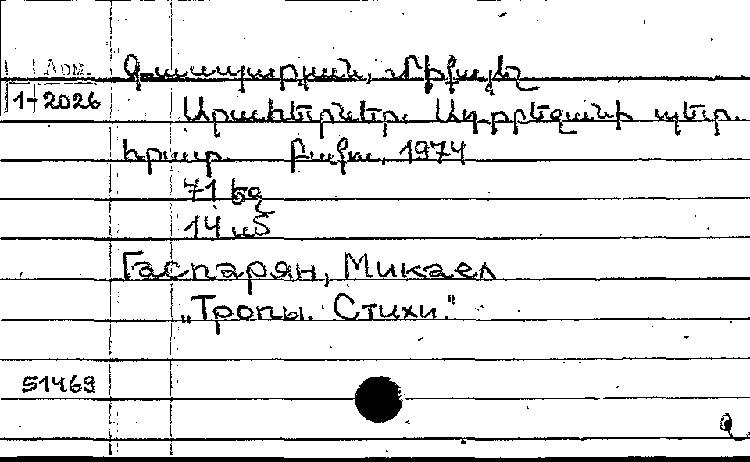 Арм.
Գասպարյան, Միքայել
1-2026
Արահետներ. Ադրբեջանի պետ.
հրատ. Բաքու, 1974
71 եջ
14 սմ
Гаспарян, Микаел
„Тропы. Стихи."
51469